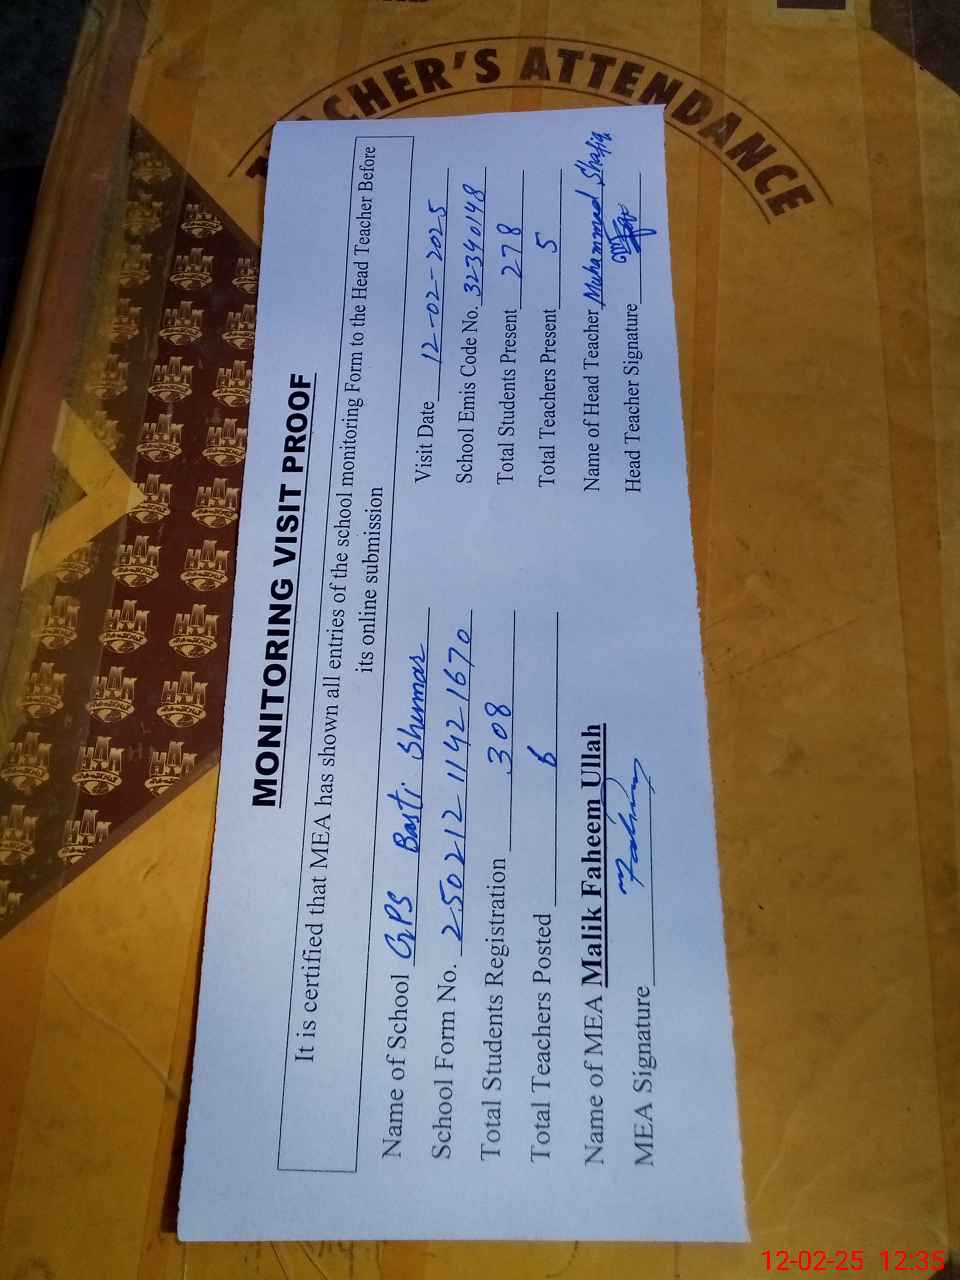 TEACHER'S ATTENDANCE
MONITORING VISIT PROOF
It is certified that MEA has shown all entries of the school monitoring Form to the Head Teacher Before
its online submission
Name of School GPS Basti Shumar Visit Date 12-02-2025
School Form No. 250212 1142 1670 School Emis Code No. 32340148
Total Students Registration 308 Total Students Present 278
Total Teachers Posted 6 Total Teachers Present 5
Name of MEA Malik Faheem Ullah Name of Head Teacher Muhammad Shafiq
MEA Signature Head Teacher Signature
12-02-25 12:35